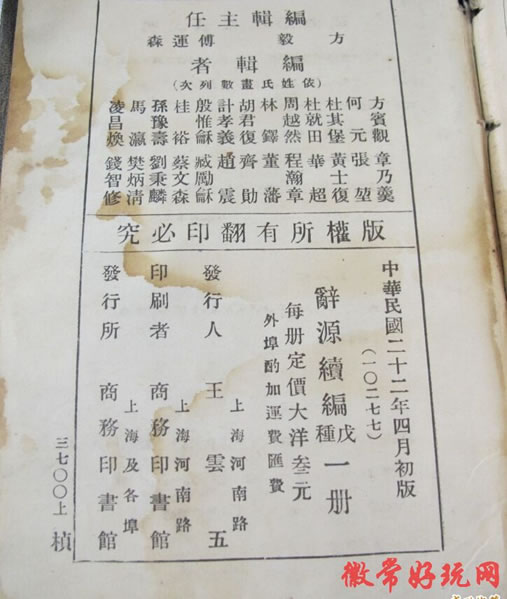 編輯主任
方毅 傅運森
編輯者
（依姓氏畫數列次）
方賓觀 章乃羹
何元 張堃
杜其堡 黃士復
杜就田 華超
周越然 程瀚章
林鐸 董藩
胡君復 齊勛
計孝義 趙震
殷惟龢 臧勵龢
桂裕 蔡文森
孫豫壽 劉秉麟
馬瀛 樊炳清
凌昌煥 錢智修
版權所有翻印必究
中華民國二十二年四月初版
（一〇二七七）
辭源續編戊種一册
每册定價大洋叁元
外埠酌加運費匯費
發行人 王雲五
上海河南路
印刷者 商務印書館
上海河南路
發行所 商務印書館
上海及各埠
三七〇〇上 楨
徽常好玩网